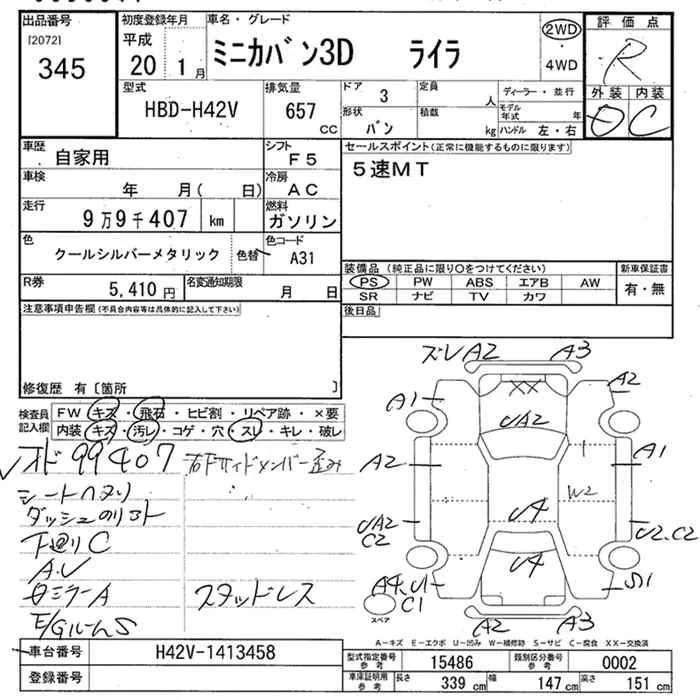 出品番号
[2072]
345
初度登録年月
平成
20 1 月
車名・グレード
ミニカバン3D ライラ
2WD
・
4WD
評価点
R
外装 内装
C
型式
HBD-H42V
排気量
657 CC
ドア
3
形状
バン
定員
人
積載
kg
ディーラー・並行
モデル年式 年
ハンドル 左・右
車歴
自家用
シフト
F5
車検
年 月( 日)
冷房
AC
走行
9万9千407 km
燃料
ガソリン
色
クールシルバーメタリック
色替
色コード
A31
R券
5,410 円
名変通知期限
月 日
セールスポイント(正常に機能するものに限ります)
5速MT
装備品(純正品に限り○をつけてください)
PS PW ABS エアB AW
SR ナビ TV カワ
新車保証書
有・無
後日品
注意事項申告欄(不具合内容等は具体的に記入して下さい)
修復歴 有〔箇所 〕
検査員記入欄
FW キズ・飛石・ヒビ割・リペア跡・×要
内装 キズ・汚レ・コゲ・穴・スレ・キレ・破レ
99407
右Fサイドメンバー歪み
シートヘタリ
ダッシュのリコト
下廻りC
A.V
ミラーA
E/GルームS
スタッドレス
ズレA2 A3
A1 A2
XX
UA2
A2 A1
W2
UA2
C2
U4
U2.C2
U4
A4.U1
C1
S1
スペア
A2 A3
A-キズ E-エクボ U-凹み W-補修跡 S-サビ C-腐食 XX-交換済
車台番号
H42V-1413458
登録番号
型式指定番号参考
15486
類別区分番号参考
0002
車庫証明用参考
長さ 339 cm
幅 147 cm
高さ 151 cm